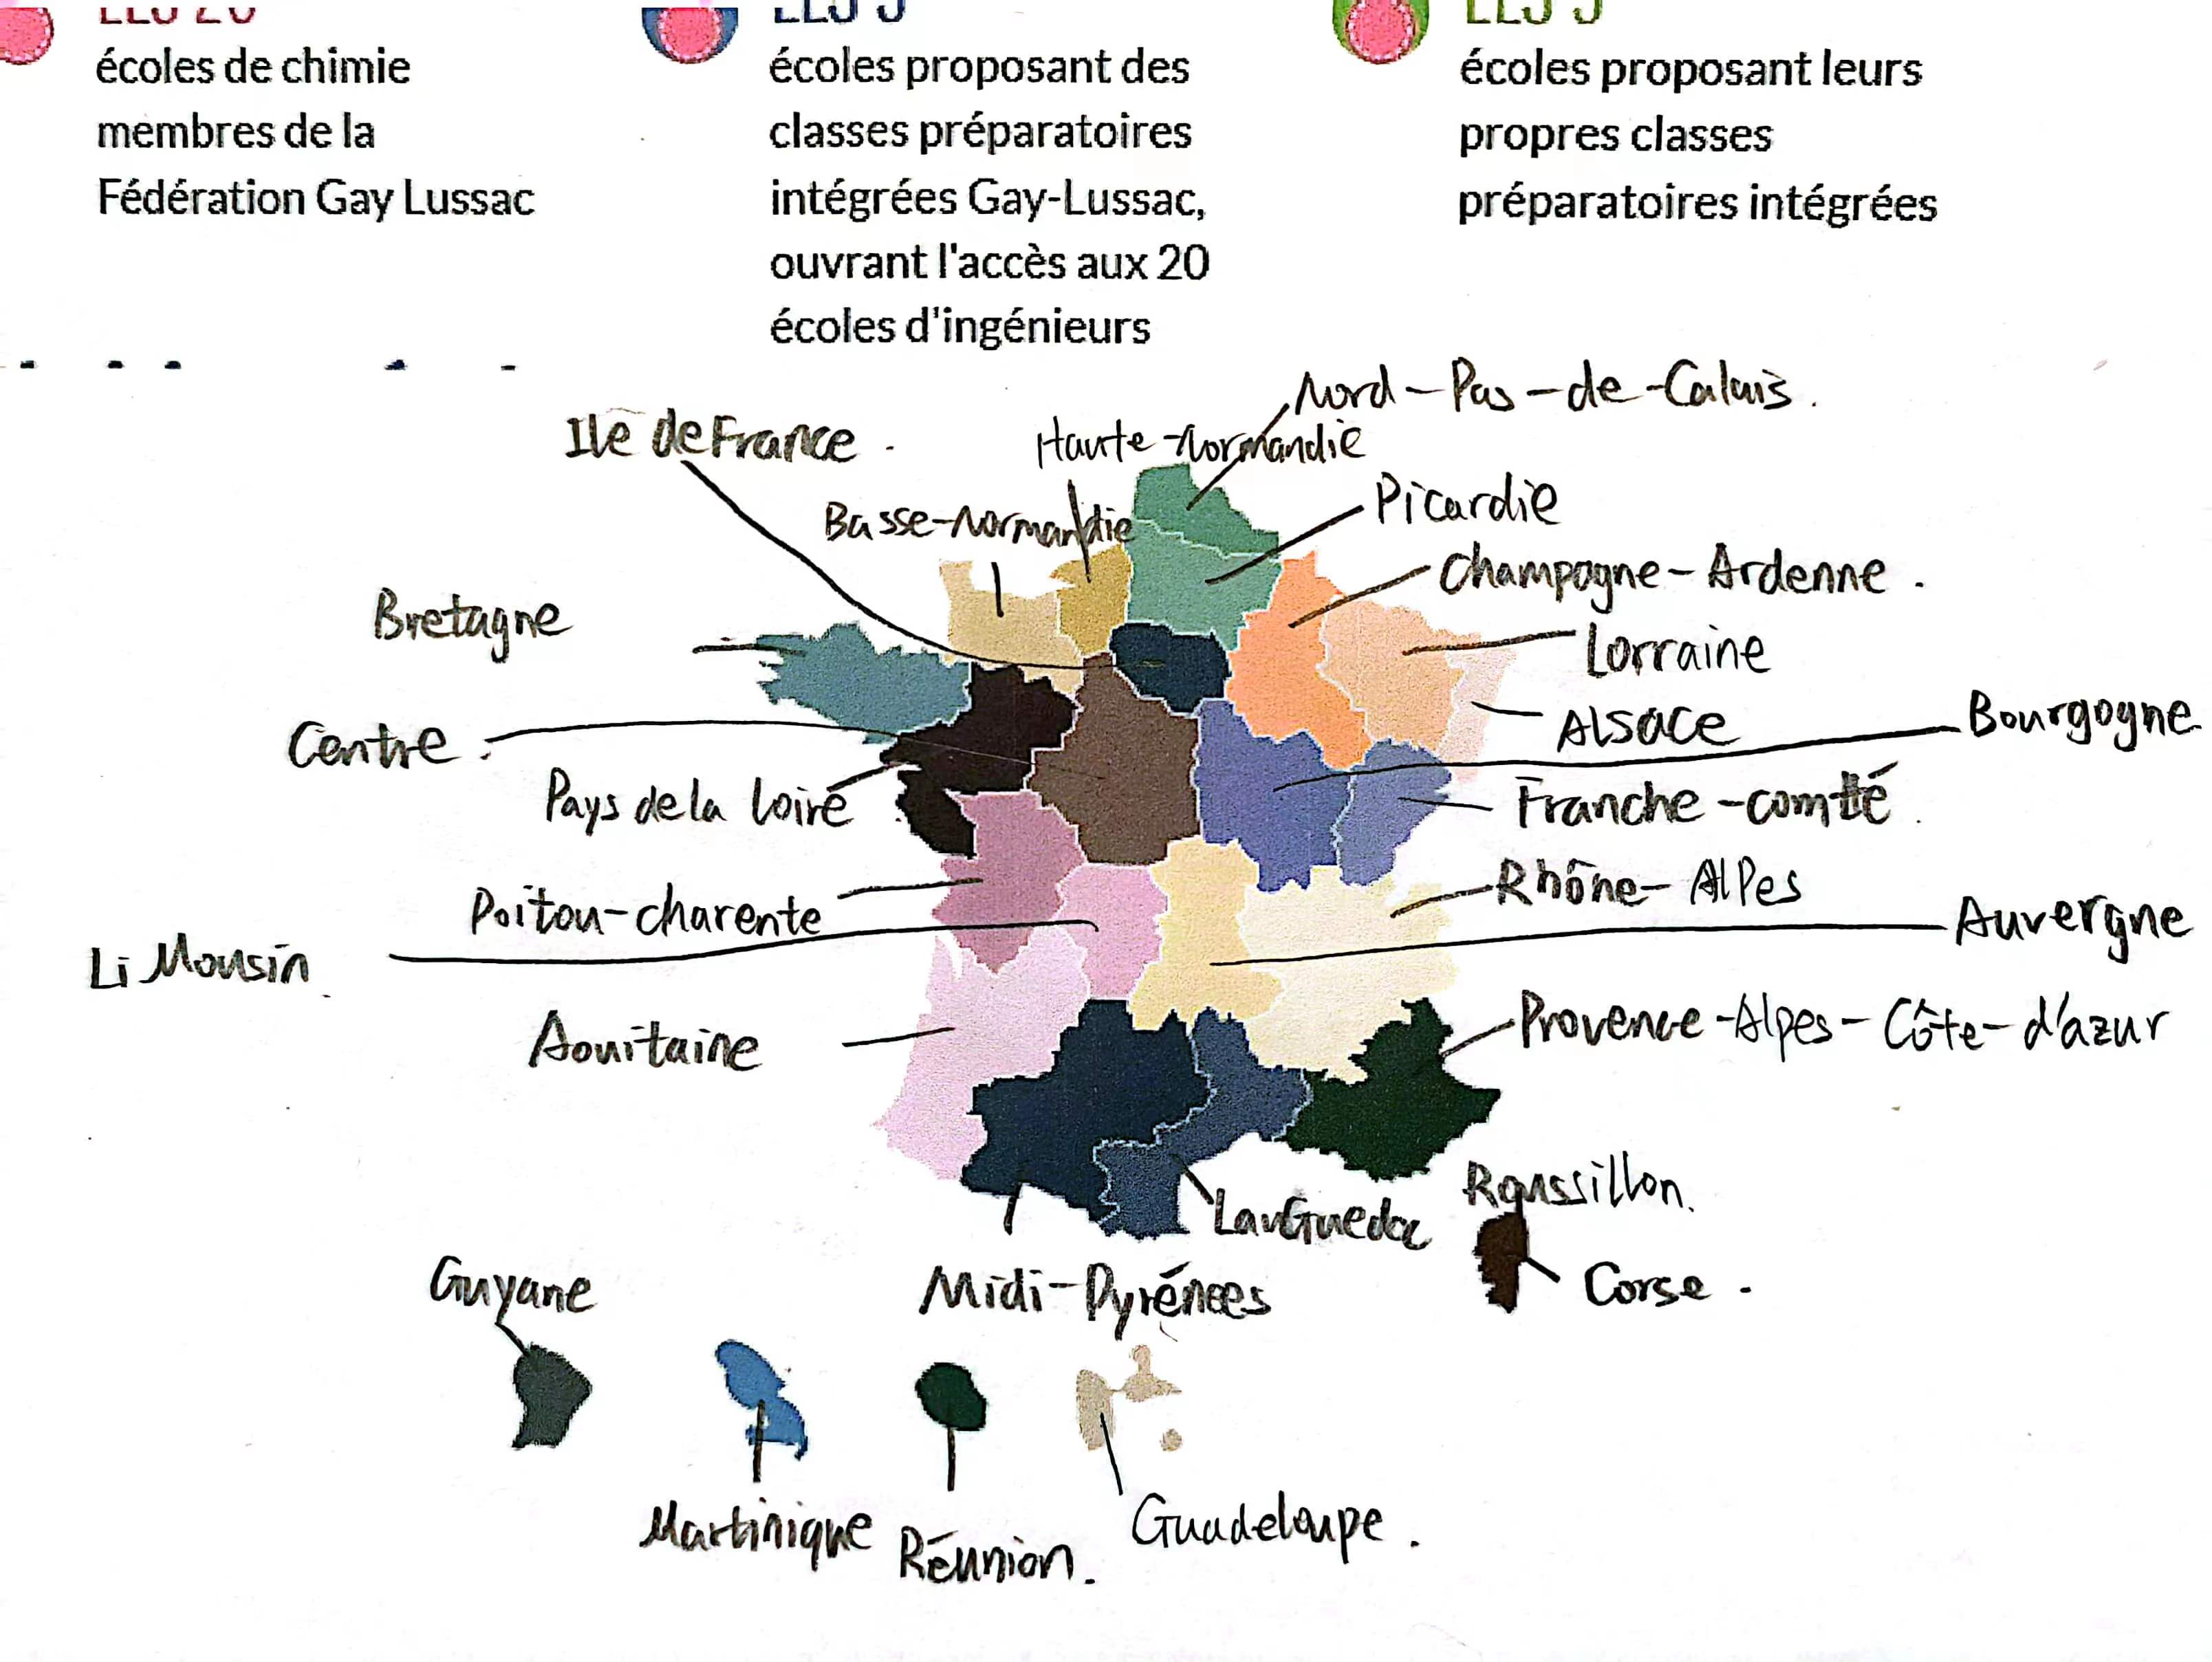 LES 20
écoles de chimie
membres de la
Fédération Gay Lussac
écoles proposant des
classes préparatoires
intégrées Gay-Lussac,
ouvrant l'accès aux 20
écoles d'ingénieurs
écoles proposant leurs
propres classes
préparatoires intégrées
Nord-Pas-de-Calais.
Ile de France.
Haute-Normandie
Picardie
Basse-Normandie
Champagne-Ardenne.
Bretagne
Lorraine
Alsace
Bourgogne
Centre.
Pays de la loire
Franche-comté.
Rhône-Alpes
Poitou-charente
Auvergne
LiMousin.
Provence-Alpes-Côte-d'azur
Aouitaine
Roussillon.
LanGuedoc
Corse.
Guyane
Midi-Pyrénees
Martinique
Réunion.
Guadeloupe.